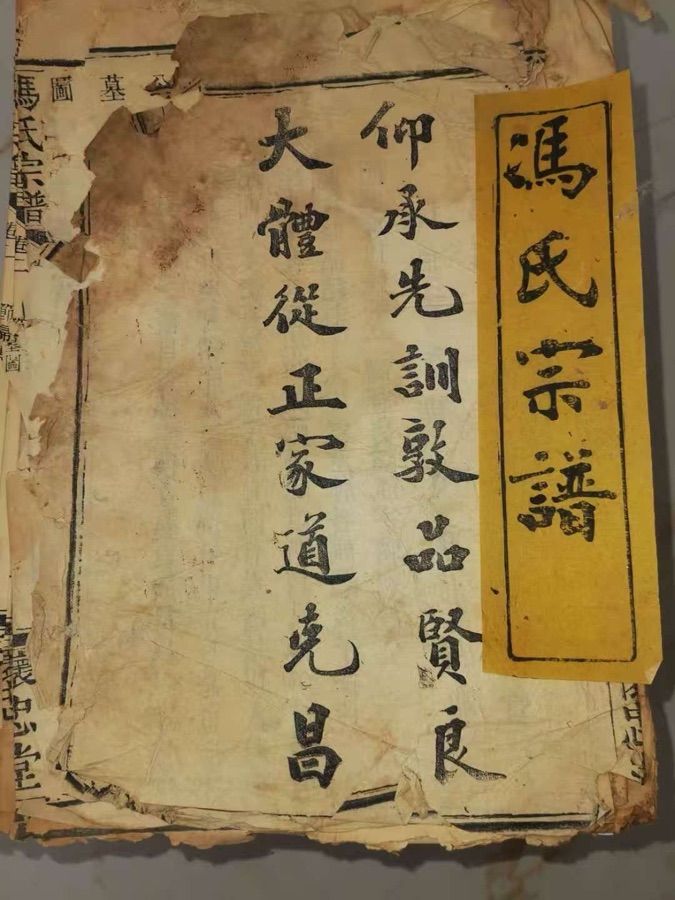 馮氏宗譜
仰承先訓敦品賢良
大體從正家道克昌
墓圖
馮氏宗譜
忠堂